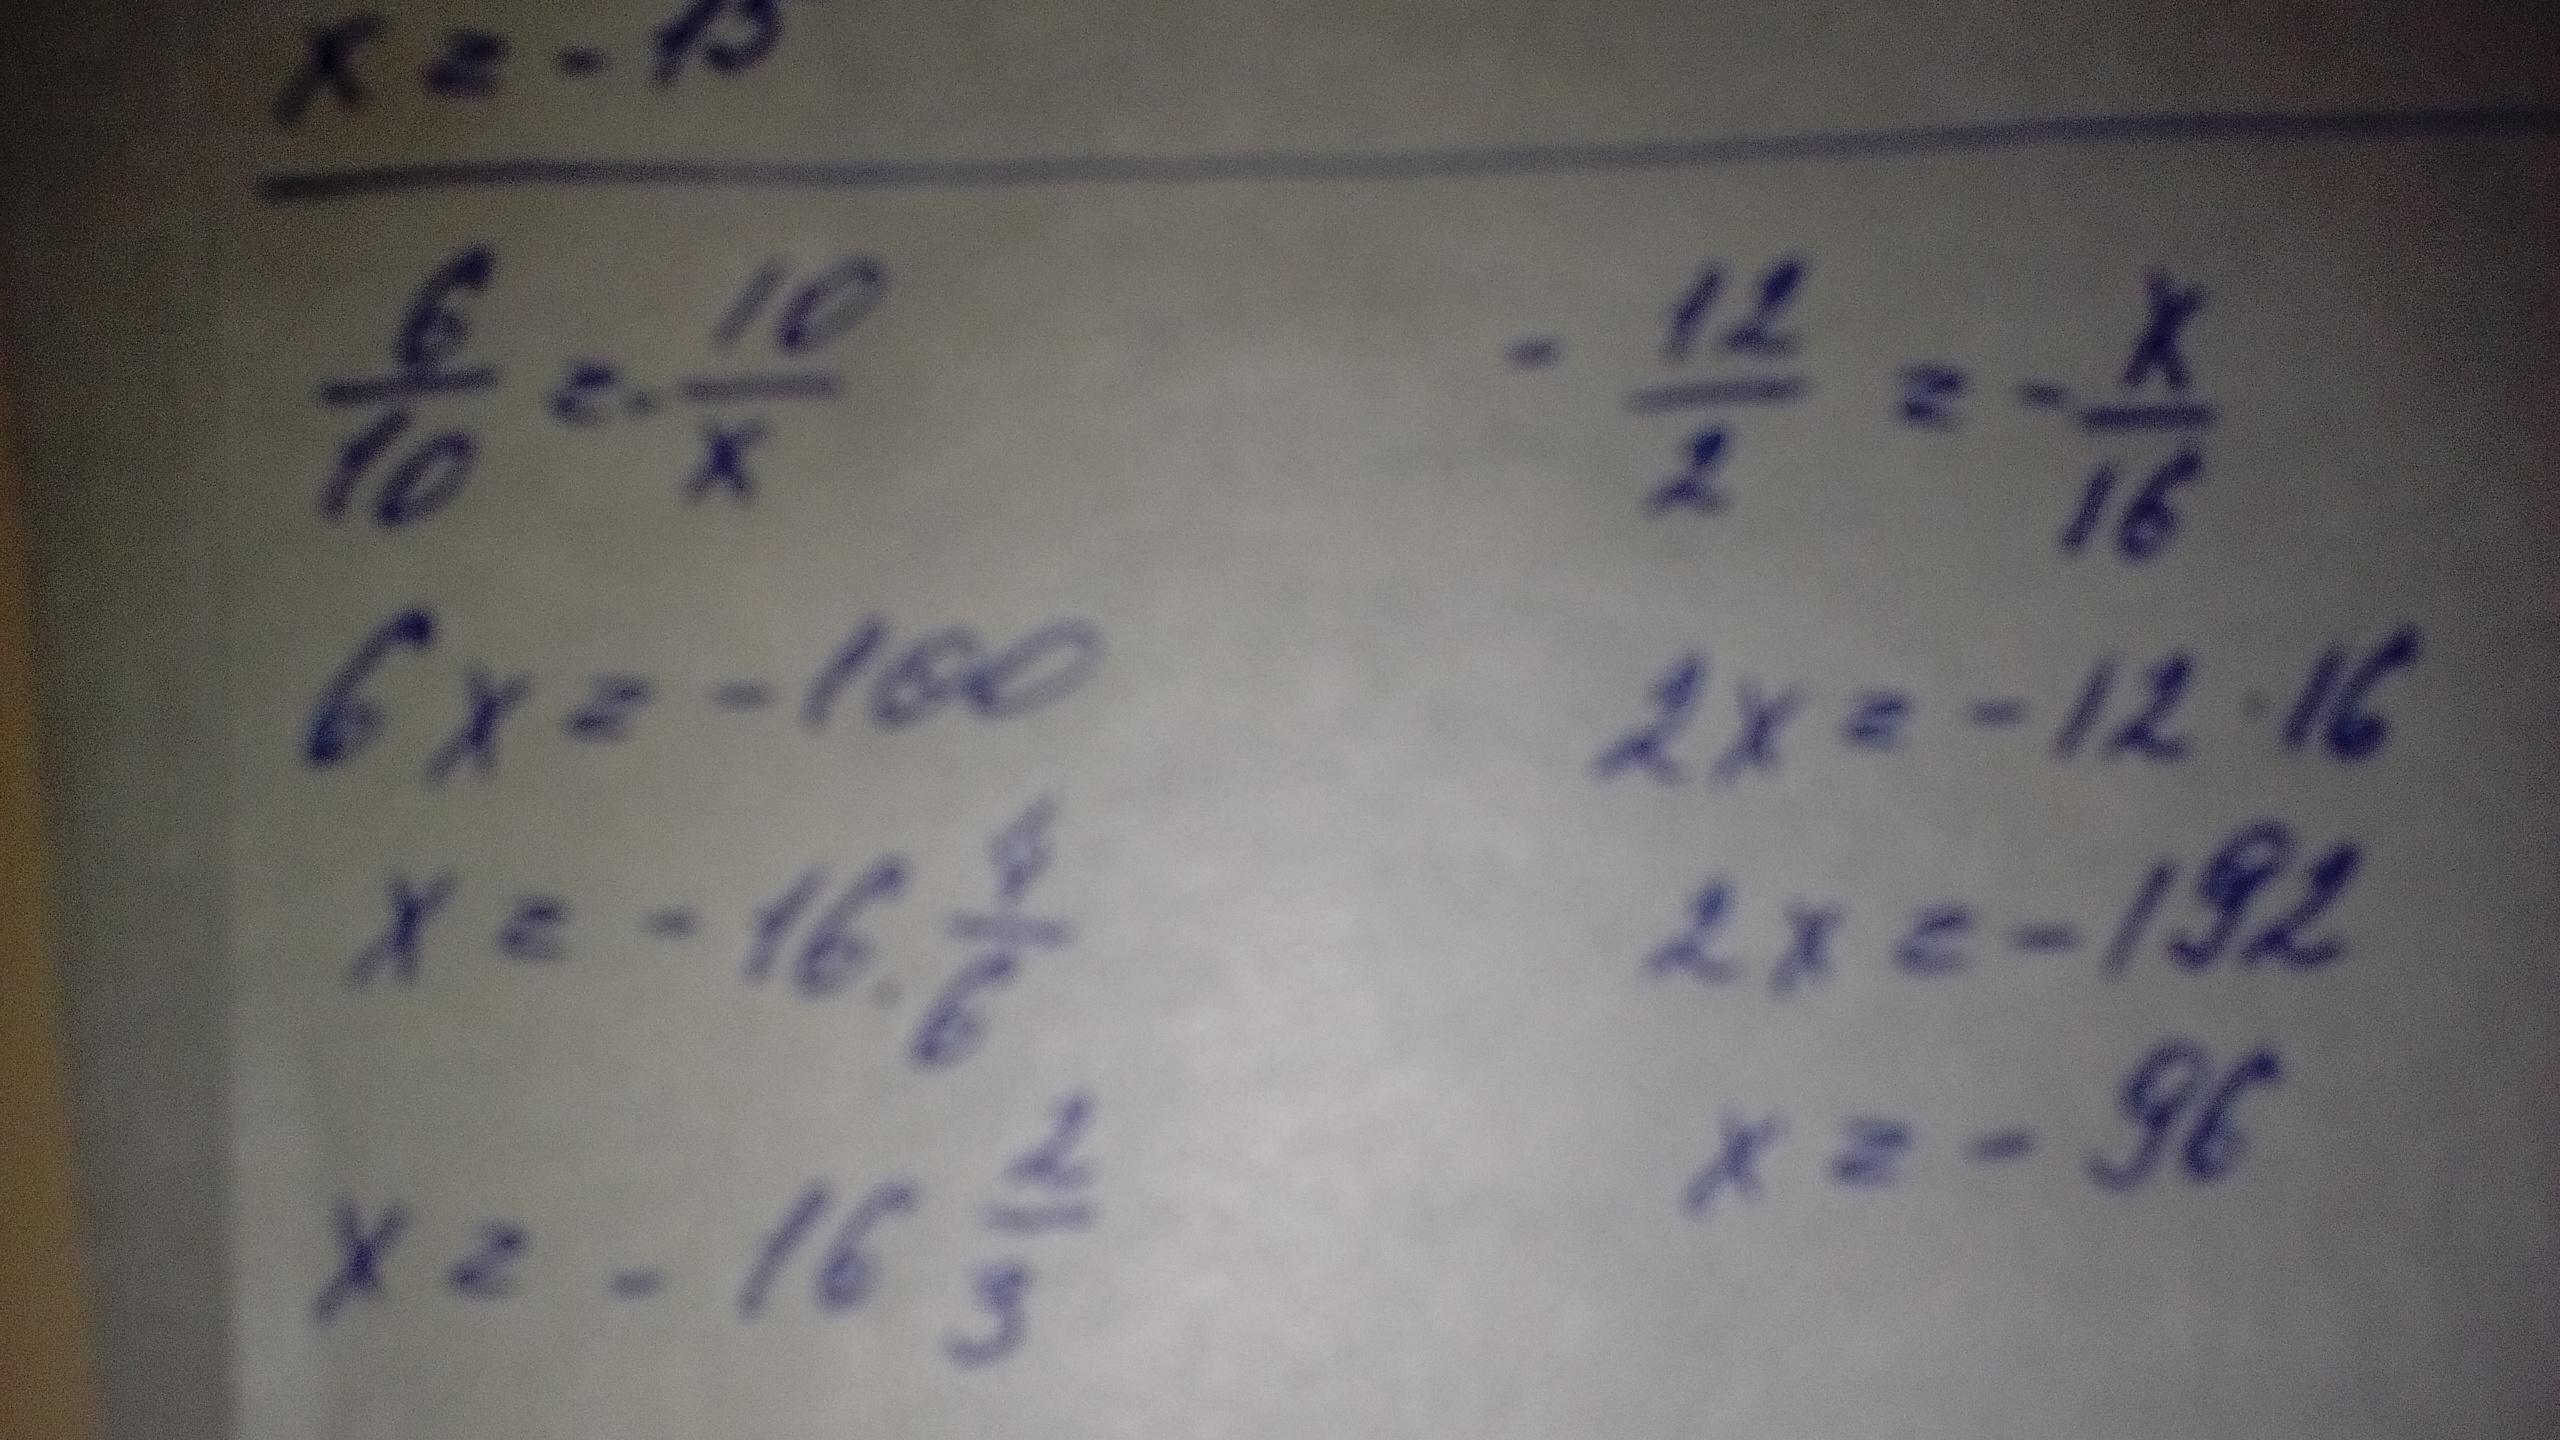 x = - 13
6/10 = - 10/x
6x = - 100
x = - 16 4/6
x = - 16 2/3
- 12/2 = - x/16
2x = - 12 · 16
2x = - 192
x = - 96